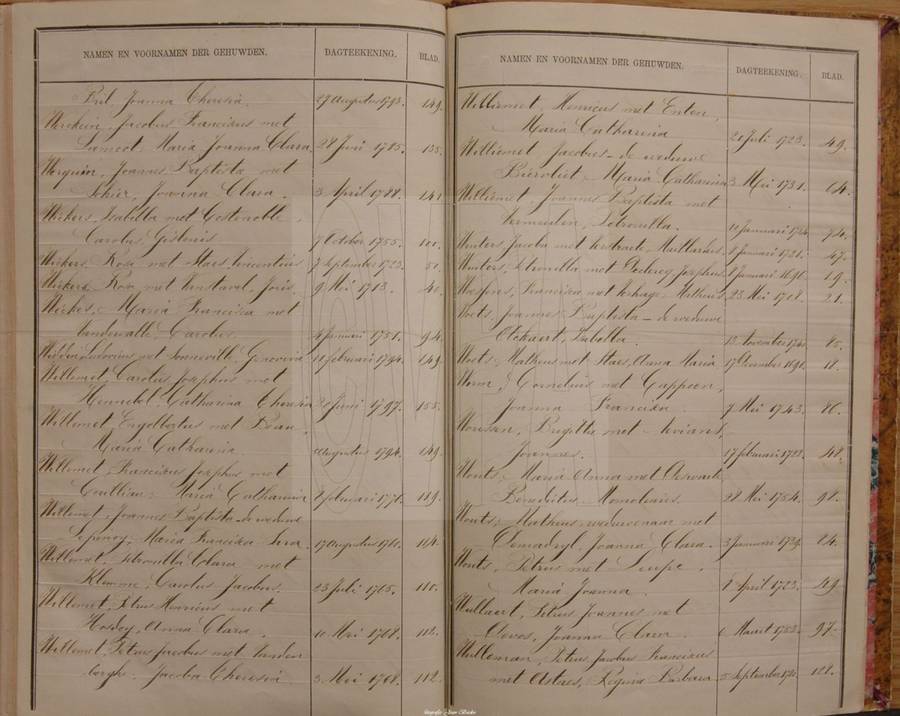 NAMEN EN VOORNAMEN DER GEHUWDEN. DAGTEEKENING. BLAD.
Pril, Joanna Theresia. 27 Augustus 1793. 149.
Werckein, Jacobus Franciscus met
Lamoot, Maria Joanna Clara. 28 Juni 1785. 135.
Werquin, Joannes Baptista met
Schier, Joanna Clara. 3 April 1788. 141.
Wickers, Isabella met Costenoble,
Carolus Gislenis 7 October 1755. 100.
Wickers, Rosa met Staes, Vincentius 7 September 1723. 50.
Wickers, Rosa, met Verstavel, Joris. 9 Mei 1713. 40.
Wickes, Maria Francisca met
Vandewalle, Carolus. 4 Januari 1751. 94.
Ludovicus met Sonneville, Genoveva 11 februari 1794. 149.
Willemet, Carolus Josephus met
Hennebel, Catharina Theresia 20 Juni 1797. 155.
Willemet, Engelbertus met Beau,
Maria Catharina. Augustus 1794. 149.
Willemet, Franciscus Josephus met
Coulliau, Maria Catharina 2 februari 1776. 189.
Willemet, Joannes Baptista de weduwe
Maria Francisca 17 Augustus 114.
Willemet, Petronilla Clara met
Klemme, Carolus Jacobus. 23 Juli 1765. 110.
Willemet, Petrus Henricus met
Anna Clara. 10 Mei 1768. 112.
Willemet, Petrus Jacobus met Vanden
berghe, Jacoba Theresia 3 Mei 1768. 112.
NAMEN EN VOORNAMEN DER GEHUWDEN. DAGTEEKENING. BLAD.
Williemet, Henricus met Enten,
Maria Catharina 20 Juli 1723. 49.
Williemet, Jacobus - de weduwe
Biervliet, Maria Catharina 3 Mei 1731. 64.
Williemet, Joannes Baptista met
Vermeulen, Petronilla. 10 Januari 74.
Winters, Jacoba met Verstraete, 8 Januari 1721. 47.
Winters, Petronilla met Declercq, Josephus 8 Januari 1691. 19.
Francisca met Verhage, Matheus. 23 Mei 1708. 21.
Woets, Joannes Baptista - de weduwe
Olckaert, Isabella. 13 November
Woets, Matheus met Staes, Anna Maria 17 December 1691. 18.
Worm, Cornelius met Cappoen,
Joanna Francisca. 7 Mei 1743. 86.
Brigitta met
Joannes. 17 februari 1722. 48.
Wouts, Maria Anna met
Benedictus 28 Mei 1754. 98.
Wouts, Matheus, weduwenaar met
Joanna Clara. 3 Januari 1739. 24.
Wouts, Petrus met
Maria Joanna. 1 April 1723. 49.
Wullaert, Petrus Joannes met
Devos, Joanna Clara. 6 Maart 1753. 97.
Wulleman, Petrus Jacobus Franciscus
met Regina Barbara. 5 September 128.